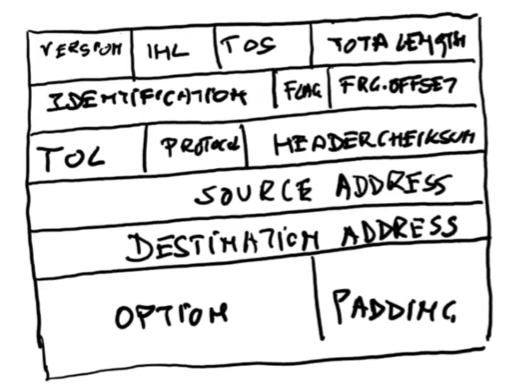 VERSION IHL TOS TOTA LENGTH
IDENTIFICATION FLAG FRG.OFFSET
TOL PROTOCOL HEADERCHEIKSUM
SOURCE ADDRESS
DESTINATION ADDRESS
OPTION PADDING